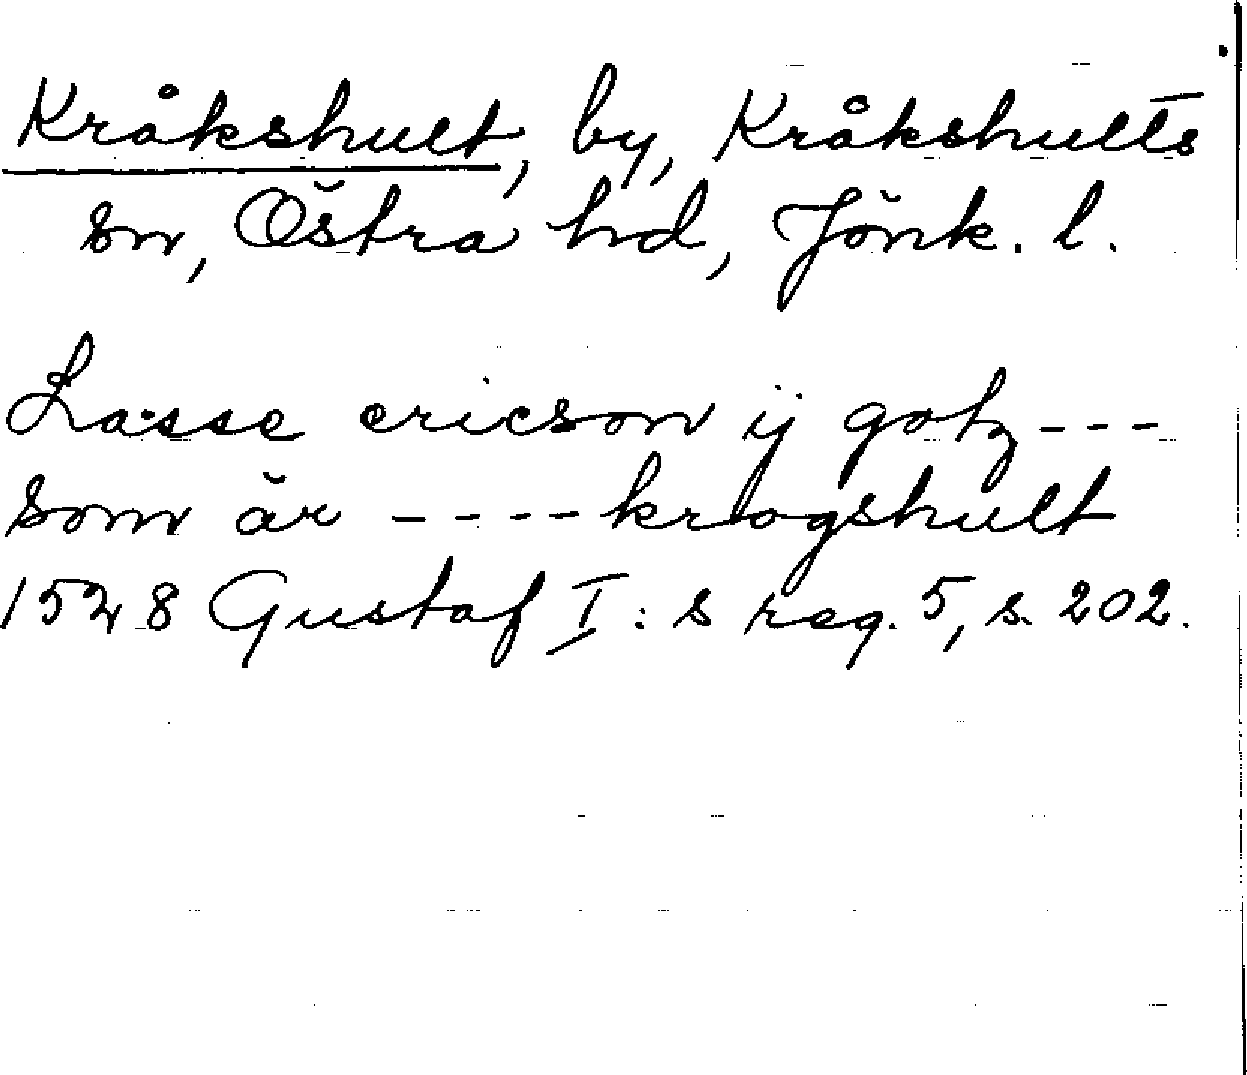 Kråkshult, by, Kråkshults
sn, Östra hd, Jönk. l.
Lasse ericson ij gotz ---
som är ---- krogshult
1528 Gustaf I:s reg. 5, s. 202.